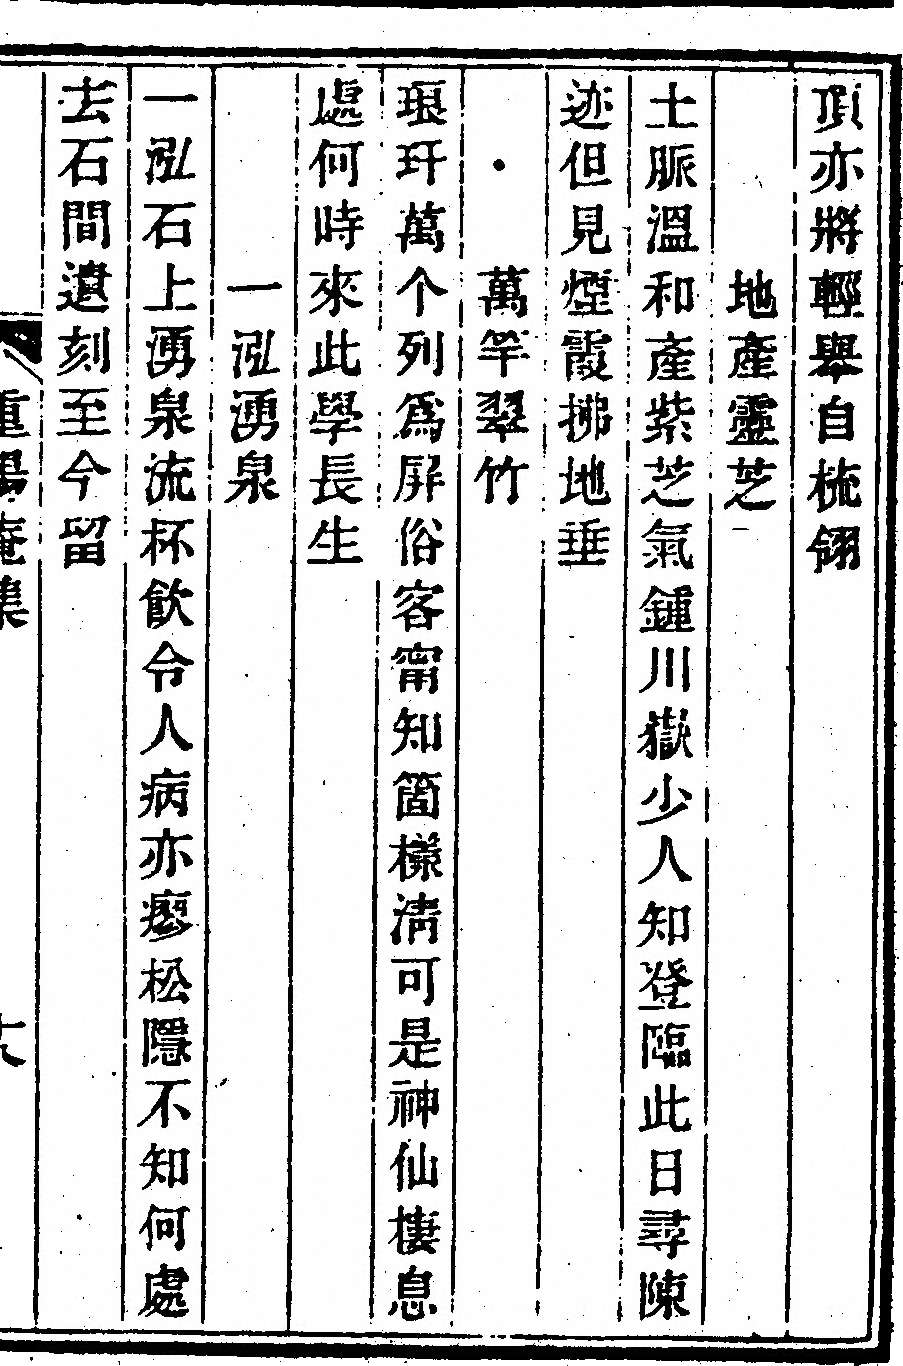 頂亦將輕舉自梳翎
地產靈芝
土脈溫和產紫芝氣鍾川嶽少人知登臨此日尋陳
迹但見煙霞拂地垂
萬竿翠竹
琅玕萬个列爲屏俗客甯知箇樣淸可是神仙棲息
處何時來此學長生
一泓湧泉
一泓石上湧泉流杯飮令人病亦瘳松隱不知何處
去石間遺刻至今留
重陽庵集